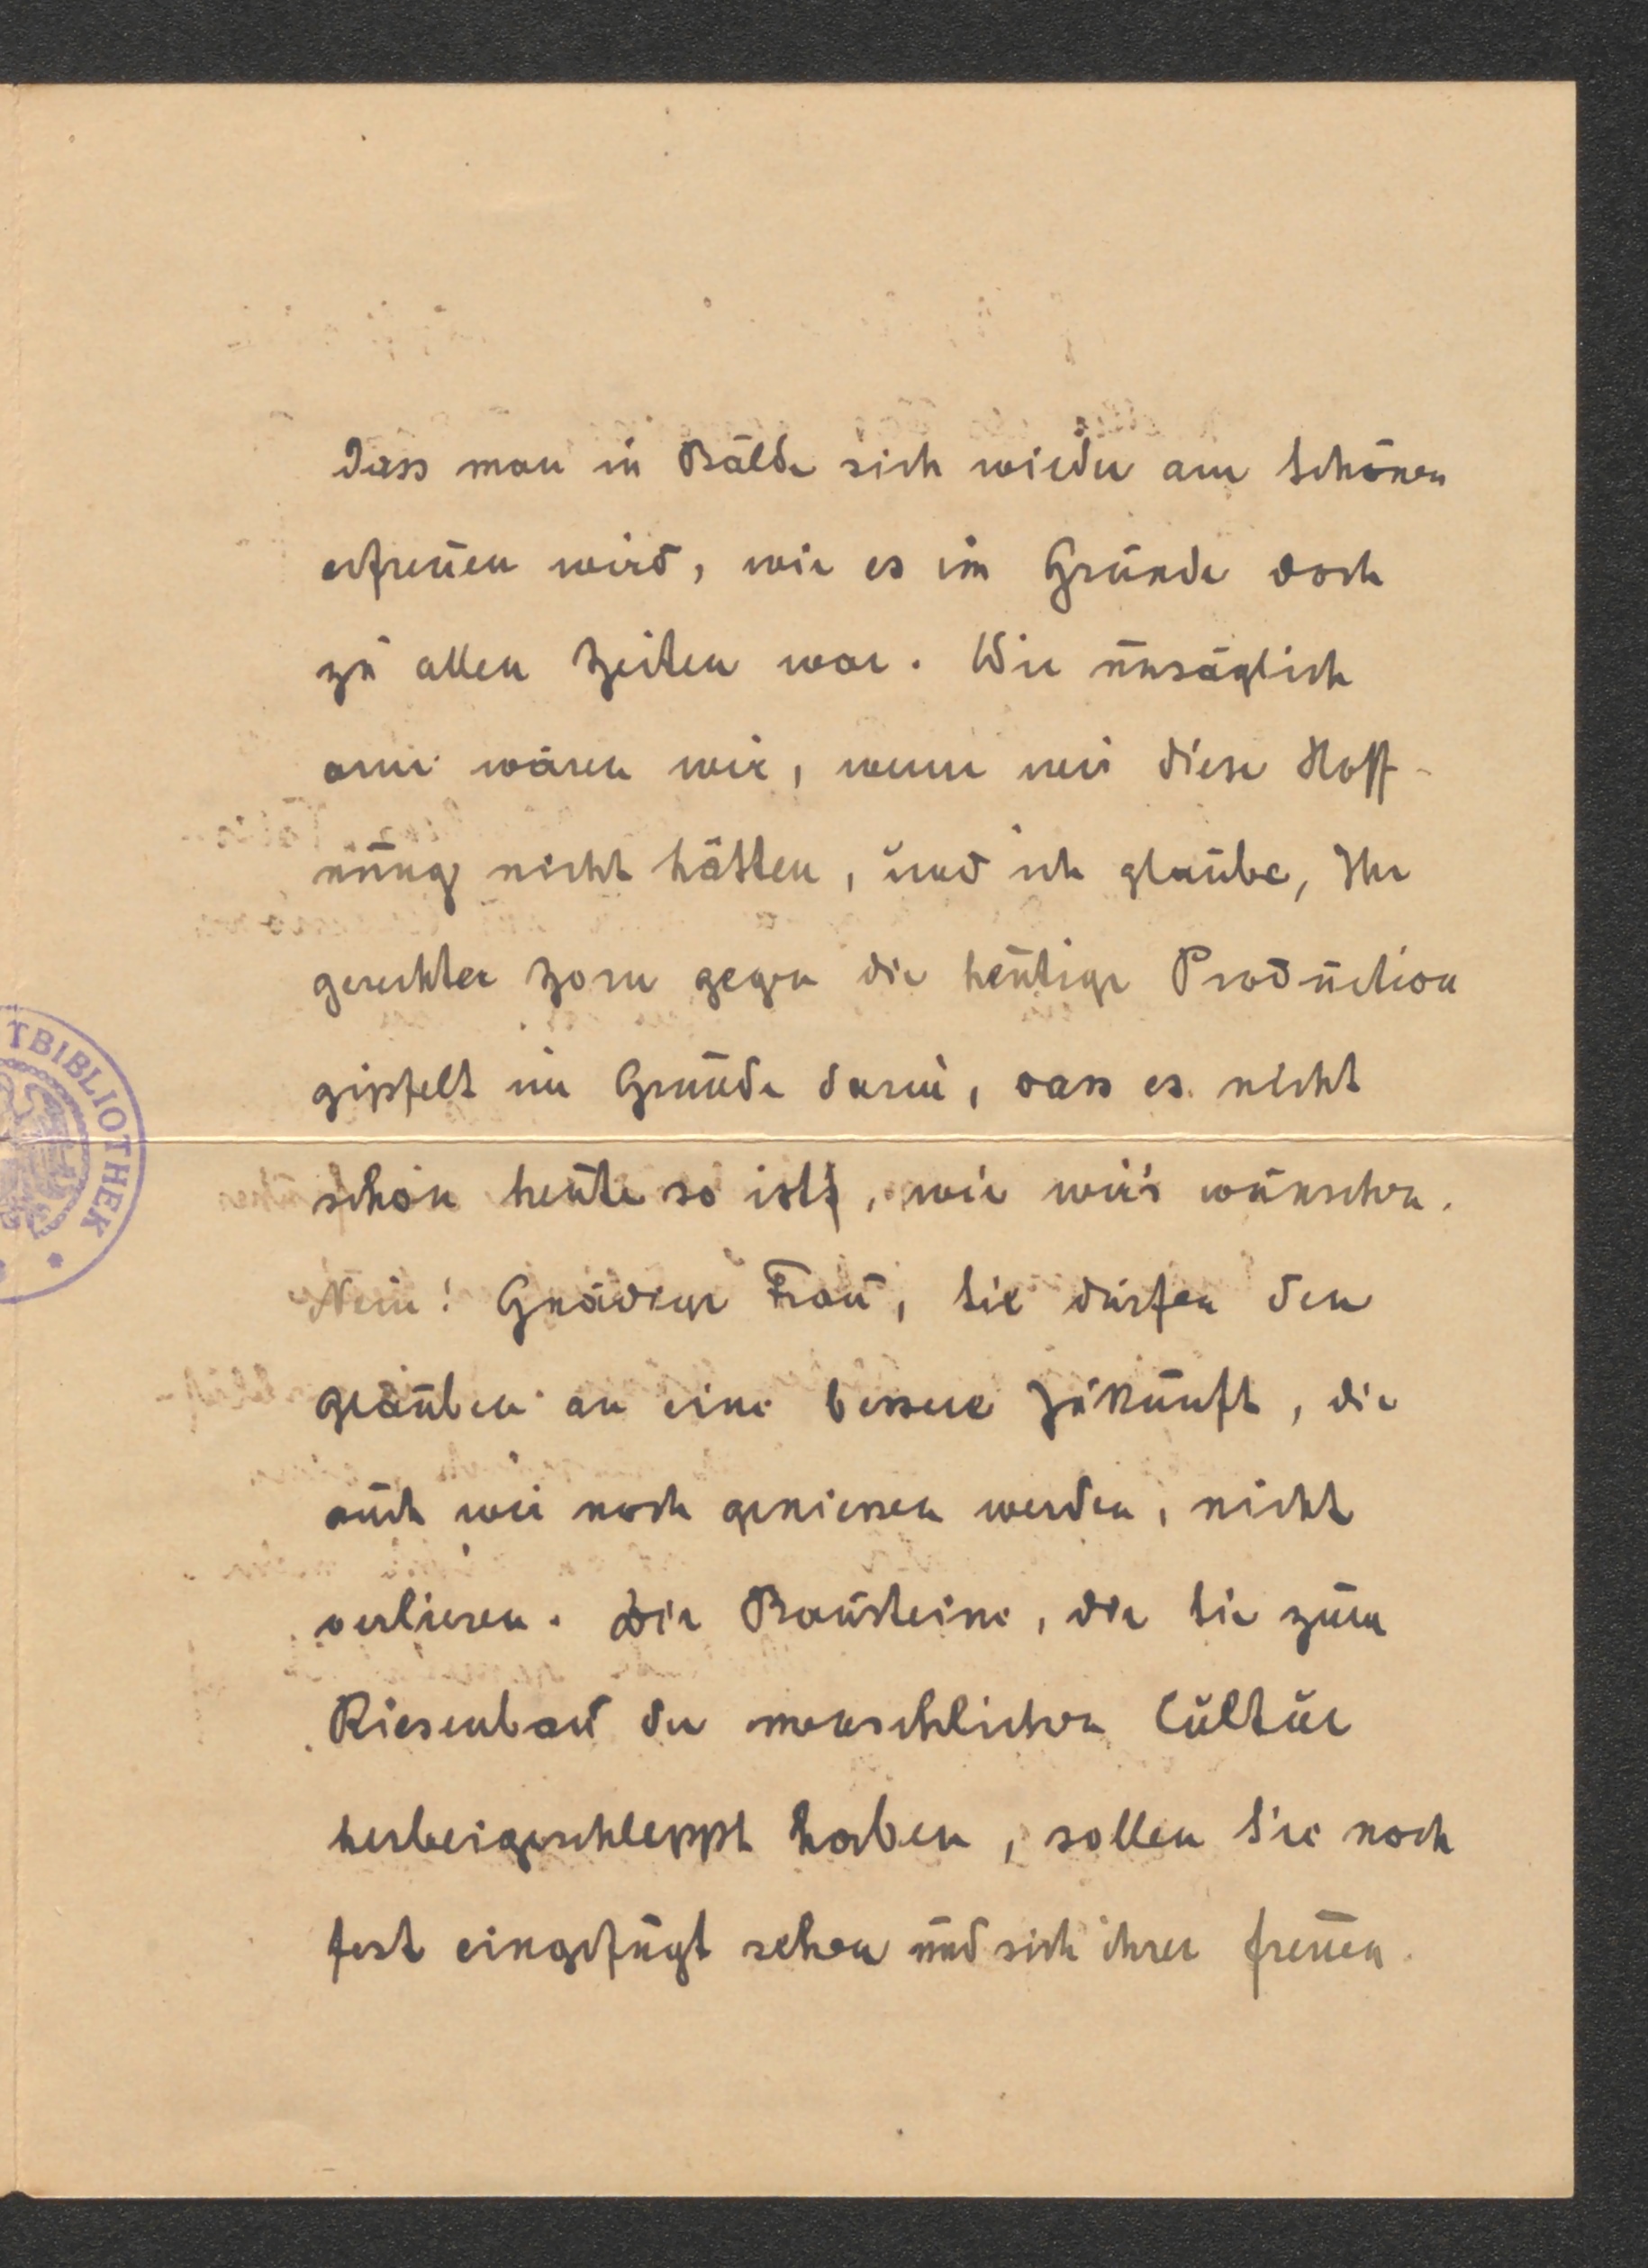 dass man in Bälde sich wieder am Schönen
erfreuen wird, wie es im Grunde doch
zu allen Zeiten war. Wie unsäglich
arm wären wir, wenn wir diese Hoff-
nung nicht hätten, und ich glaube, Ihr
gerechter Zorn gegen die heutige Production
gipfelt im Grunde darin, dass es nicht
schon heute so ist, wie wir's wünschen.
Nein! Gnädige Frau, Sie dürfen den
Glauben an eine bessere Zukunft, die
auch wir noch geniessen werden, nicht
verlieren. Die Bausteine, die Sie zum
Riesenbau der menschlichen Cultur
herbeigeschleppt haben, sollen Sie noch
fest eingefügt sehen und sich ihrer freuen.
TBIBLIOTHEK